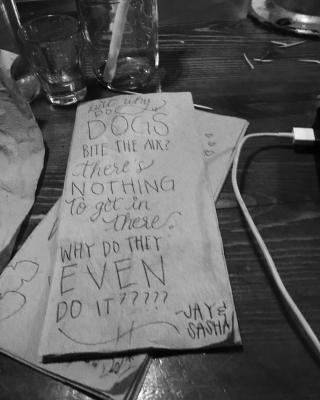 But why
DO
DOGS
BITE THE AIR?
there's
NOTHING
to get in
there!
WHY DO THEY
EVEN
DO IT?????
~JAY &
SASHA